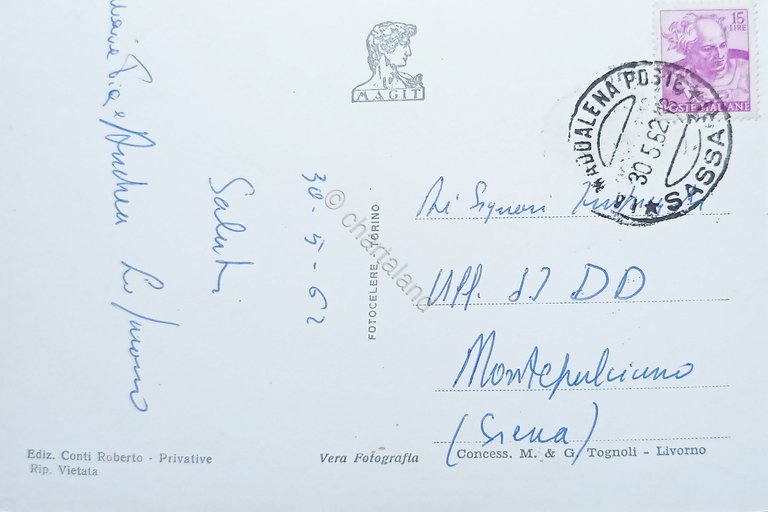 MAGIT
15
LIRE
POSTE ITALIANE
LA MADDALENA POSTE ★ SASSARI ★
30.5.62
Pia e Andrea
Saluti
30-5-62
© chartaland
FOTOCELERE TORINO
Ai Signori
Uff. II DD
Montepulciano
(Siena)
Ediz. Conti Roberto - Privative
Rip. Vietata
Vera Fotografia
Concess. M. & G. Tognoli - Livorno